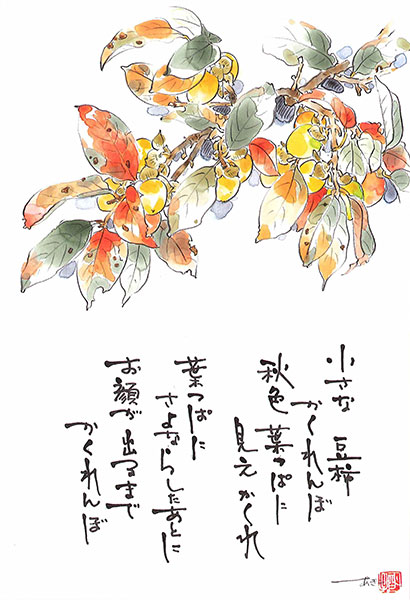 小さな 豆柿
かくれんぼ
秋色 葉っぱに
見えかくれ
葉っぱに
さよならしたあとに
お顔が出るまで
かくれんぼ
あき